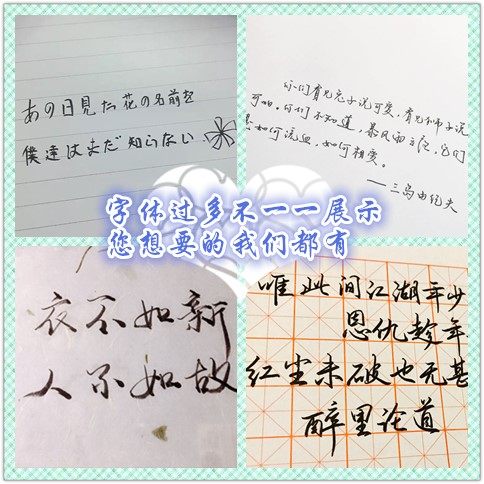 あの日見た花の名前を
僕達はまだ知らない
你们看见兔子说可爱,看见狮子说
可怕。你们不知道,暴风雨之夜,它们
是如何流血,如何相爱。
——三岛由纪夫
字体过多不一一展示
您想要的我们都有
衣不如新
人不如故
唯此间江湖年少
恩仇趁年
红尘未破也无甚
醉里论道